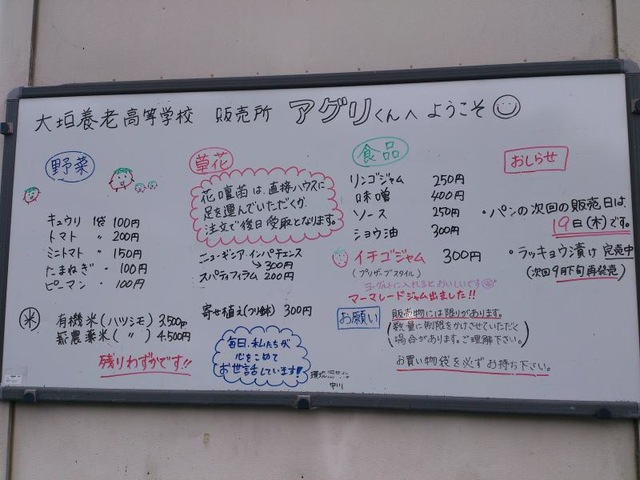 大垣養老高等学校 販売所 アグリくんへ ようこそ
野菜
キュウリ 1袋 100円
トマト 〃 200円
ミニトマト 〃 150円
たまねぎ 〃 100円
ピーマン 〃 100円
米
有機米(ハツシモ) 3,500円
農薬米( 〃 ) 4,500円
残りわずかです!!
草花
花壇苗は、直接ハウスに
足を運んでいただくか、
注文で後日受取となります。
ニューギニア・インパチェンス
→300円
スパティフィラム 200円
寄せ植え(つり鉢) 300円
毎日、私たちが
心をこめて
お世話しています!
食品
リンゴジャム 250円
味噌 400円
ソース 250円
ショウ油 300円
イチゴジャム 300円
(プリザーブスタイル)
ヨーグルトに入れるとおいしいです
マーマレードジャム出ました!!
お願い
販売物には限りがあります。
(数量に制限をかけさせていただく
場合があります。ご理解下さい。)
お買い物袋を必ずお持ち下さい。
おしらせ
・パンの次回の販売日は
19日(木)です。
・ラッキョウ漬け 完売中
(次回9月下旬再発売)